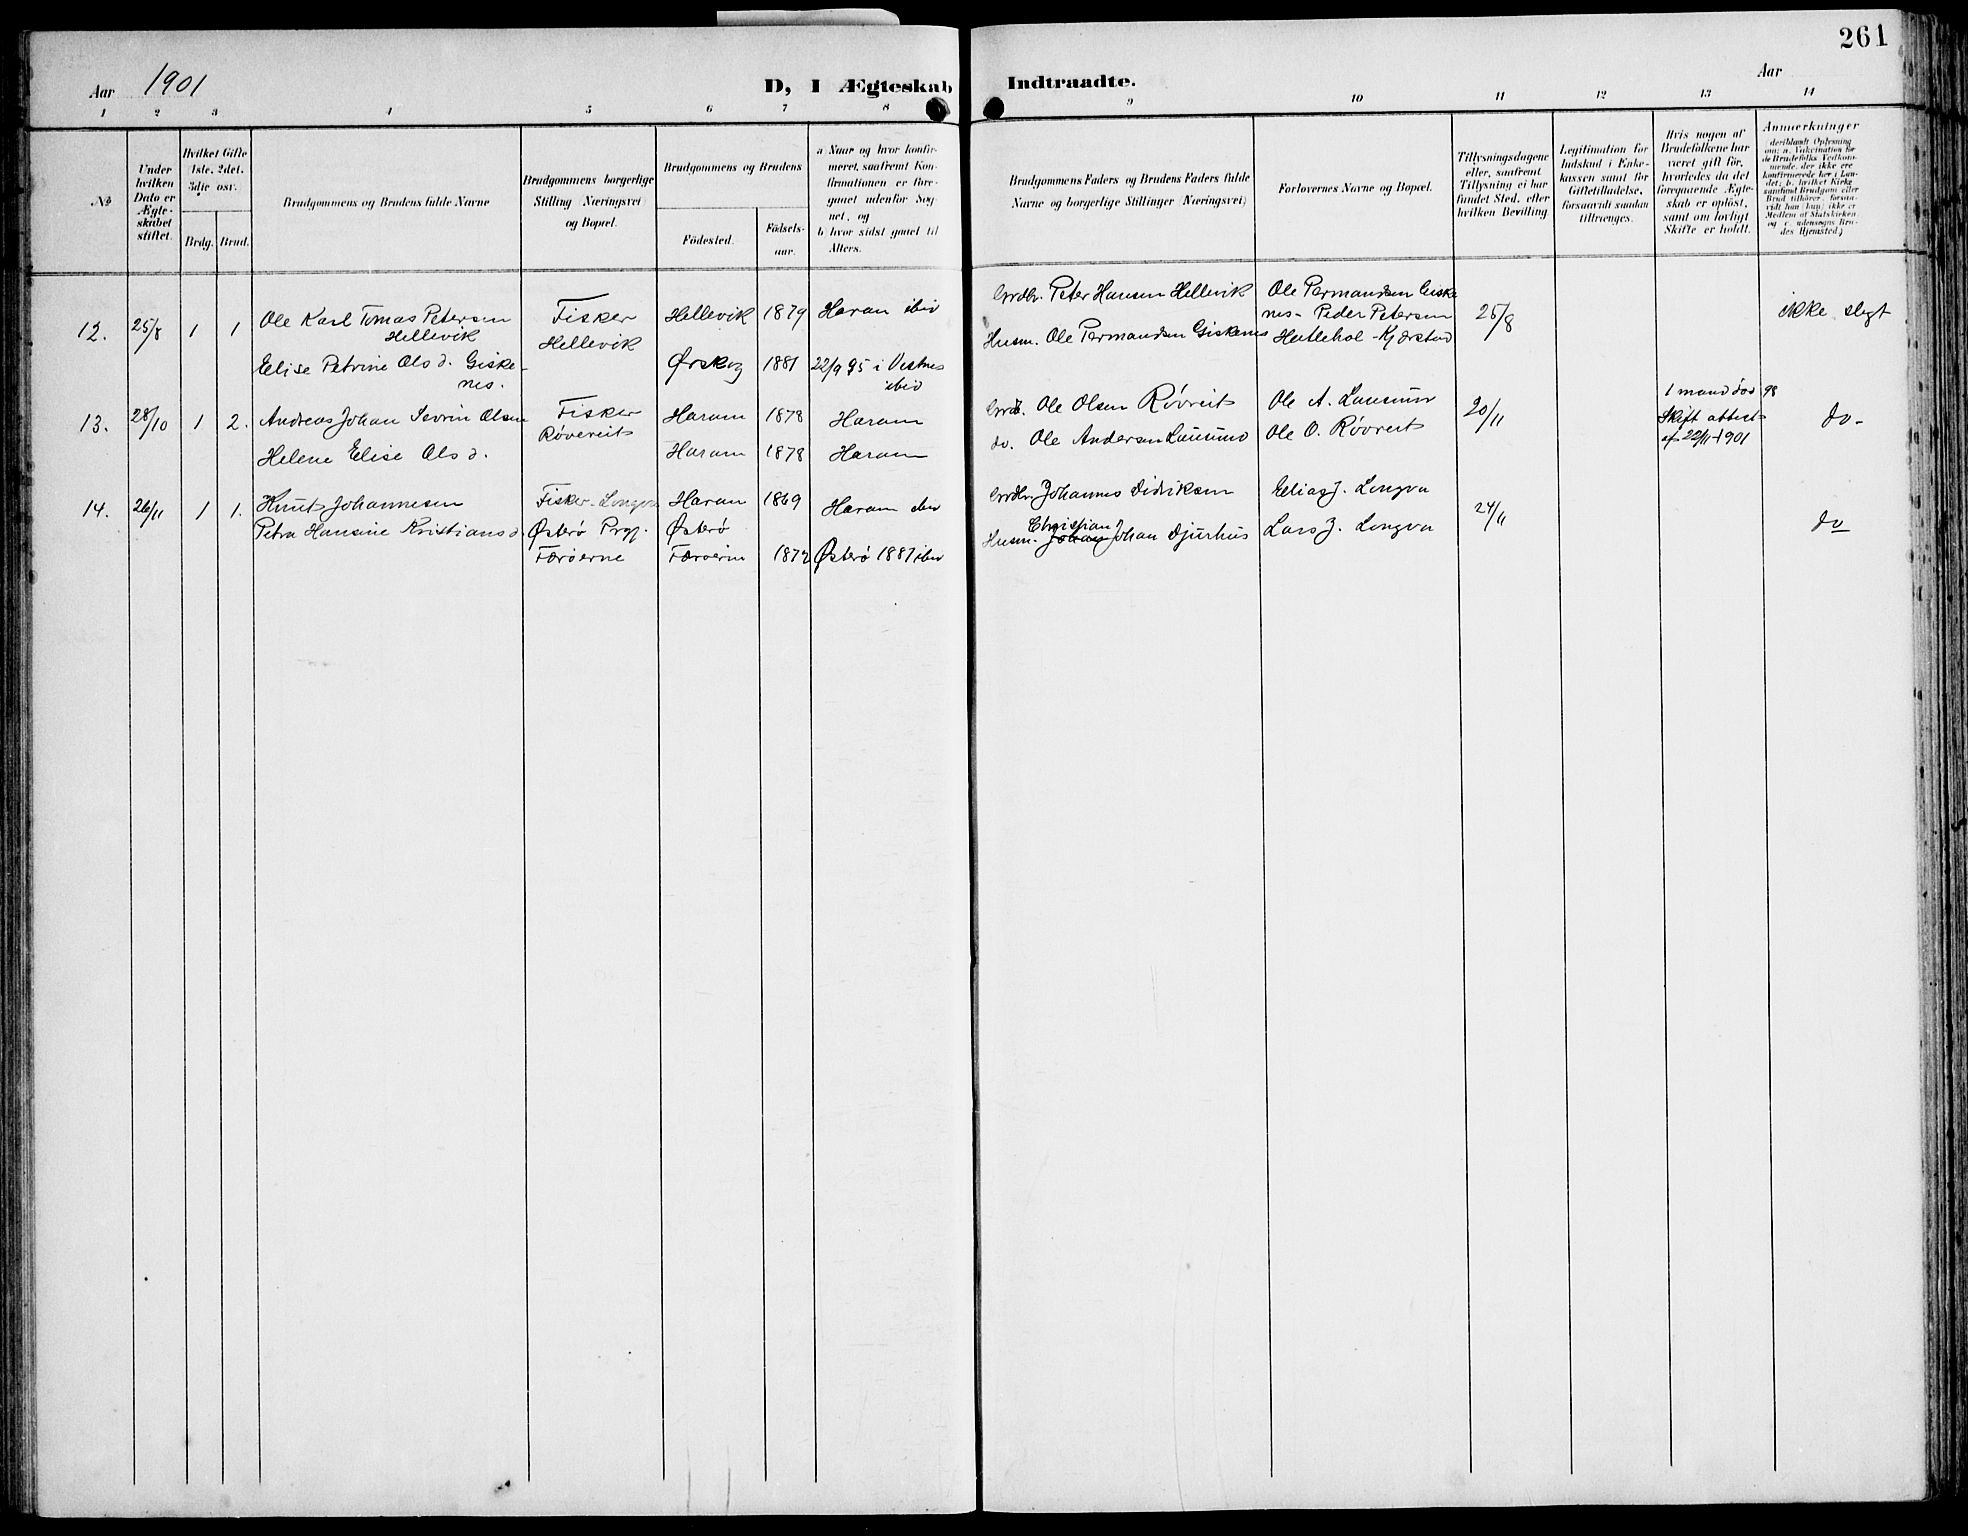 261
Aar 1901
D, I Ægteskab Indtraadte.
Aar
1 2 3 4 5 6 7 8 9 10 11 12 13 14
No
Under hvilken Dato er Ægteskabet stiftet.
Hvilket Gifte 1ste, 2det, 3die osv.
Brdg. Brud.
Brudgommens og Brudens fulde Navne
Brudgommens borgerlige Stilling Næringsvei og Bopæl.
Brudgommens og Brudens
Födested.
Födselsaar.
a Naar og hvor konfirmeret, saafremt Konfirmationen er foregaaet udenfor Sognet, og
b hvor sidst gaaet til Alters.
Brudgommens Faders og Brudens Faders fulde Navne og borgerlige Stillinger Næringsvei)
Forlovernes Navne og Bopæl.
Tillysningsdagene eller, saafremt Tillysning ei har fundet Sted, efter hvilken Bevilling
Legitimation for Indskud i Enkekassen samt for Giftetilladelse, forsaavidt saadan tiltrænges.
Hvis nogen af Brudefolkene har været gift för, hvorledes da det foregaaende Ægteskab er oplöst, samt om lovligt Skifte er holdt.
Anmerkninger
deriblandt Oplysning om: a. Vakcination for de Brudefolks Vedkommende, der ikke ere konfirmerede her i Landet; b. hvilket Kirkesamfund Brudgom eller Brud tilhörer, forsaavidt han (hun) ikke er Medlem af Statskirken, og c. udensogns Brudes Hjemsted.)
12. 25/8 1 1 Ole Karl Tomas Petersen Hellevik
Fisker Hellevik
Hellevik 1879 Haram ibid
Grdbr. Peter Hansen Hellevik
Ole Permandsen Giskenes - Peder Petersen Hestlehol - Kjærstad
25/8
ikke slegt
Elise Petrine Olsd. Giskenes.
Ørskog 1881 22/9 95 i Vestnes ibid
Husm. Ole Permandsen Giskenes
13. 28/10 1 2. Andreas Johan Sevrin Olsen
Fisker Røvereit
Haram 1878 Haram
Grdb. Ole Olsen Røvreit
Ole A. Lausund
20/11
1 mand død 98
Skift attest af 22/11 1901
do-
Helene Elise Olsd.
Haram 1878 Haram
do. Ole Andersen Lausund
Ole O. Røvreit
14. 26/11 1 1. Knut Johannesen
Fisker - Longva
Haram 1869 Haram ibid
Grdbr. Johannes Didriksen
Elias J. Longva
24/11
do
Petra Hansine Kristiansd.
Østerø Prgj. Færøerne
Østerø Færøerne 1872 Østerø 1887 ibid
Husm. Christian Johan Djurhus
Lars J. Longva